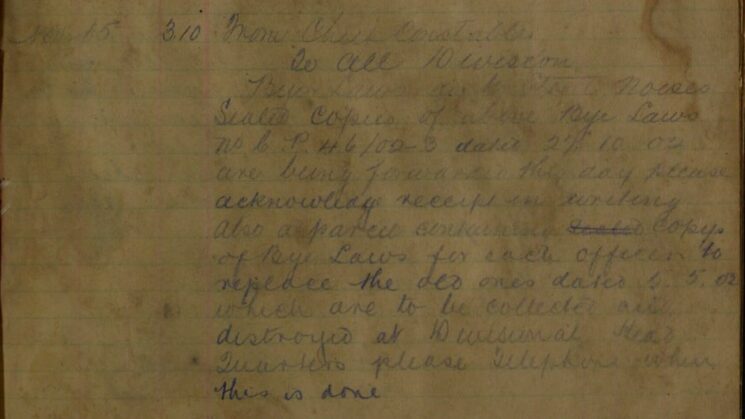 Nov 15 310 From Chief Constable
To All Division
Bye Laws as to Street Noises
Sealed Copies of above Bye Laws
No C P 46/02-3 dated 27.10.02
are being forwarded this day please
acknowledg receipt in writing
Also a parcel containing Copys
of Bye Laws for each officer to
replace the old ones dated 5.5.02
which are to be collected and
destroyed at Divisional Head
Quarters please Telephone when
this is done